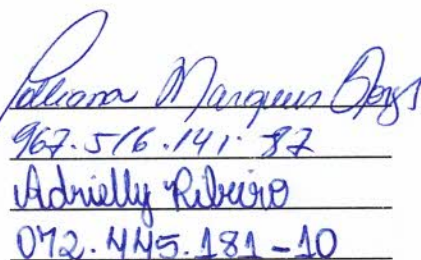 Marques Borges
967.516.141-87
Adrielly Ribeiro
072.445.181-10